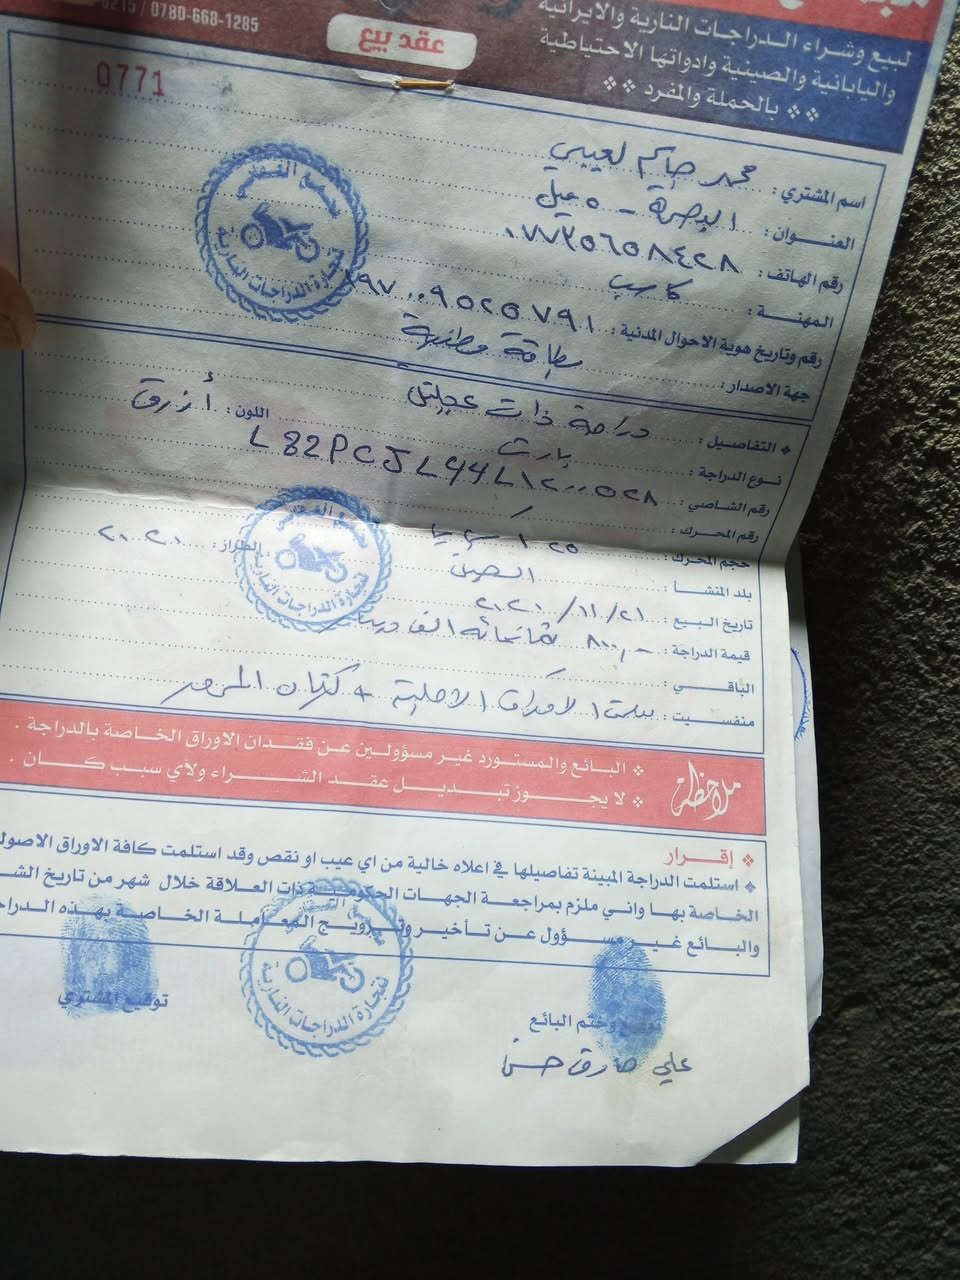 0215 / 0780-668-1285
لبيع وشراء الدراجات النارية والايرانية
واليابانية والصينية وادواتها الاحتياطية
بالحملة والمفرد
عقد بيع
0771
اسم المشتري : محمد جاسم لعيبي
العنوان : البصرة - ٥ ميل
رقم الهاتف : ٠٧٧٢٥٦٥٨٤٢٨
المهنة : كاسب
رقم وتاريخ هوية الاحوال المدنية : ١٩٧٠٠٩٥٢٥٧٩١
جهة الاصدار : بطاقة وطنية
التفاصيل : دراجة ذات عجلتين
نوع الدراجة : بارت اللون : أزرق
رقم الشاصي : L82PCJL94L1200528
رقم المحرك : /
حجم المحرك : ١٢٥ سي سي
بلد المنشأ : الصين الطراز : ٢٠٢٠
تاريخ البيع : ٢١ / ١١ / ٢٠٢٠
قيمة الدراجة : ٨٠٠,٠٠٠ ثمانمائة الف دينار
الباقي :
منفسيت : الاوراق الاصلية + كتاب المرور
ملاحظة
البائع والمستورد غير مسؤولين عن فقدان الاوراق الخاصة بالدراجة .
لا يجوز تبديل عقد الشراء ولأي سبب كان .
إقرار
استلمت الدراجة المبينة تفاصيلها في اعلاه خالية من اي عيب او نقص وقد استلمت كافة الاوراق
الخاصة بها واني ملزم بمراجعة الجهات الحكومية ذات العلاقة خلال شهر من تاريخ
والبائع غير مسؤول عن تأخير وترويج المعاملة الخاصة بهذه
توقيع وختم البائع
توقيع المشتري
علي صادق حسن
لتجارة الدراجات النارية
لتجارة الدراجات النارية
لتجارة الدراجات النارية